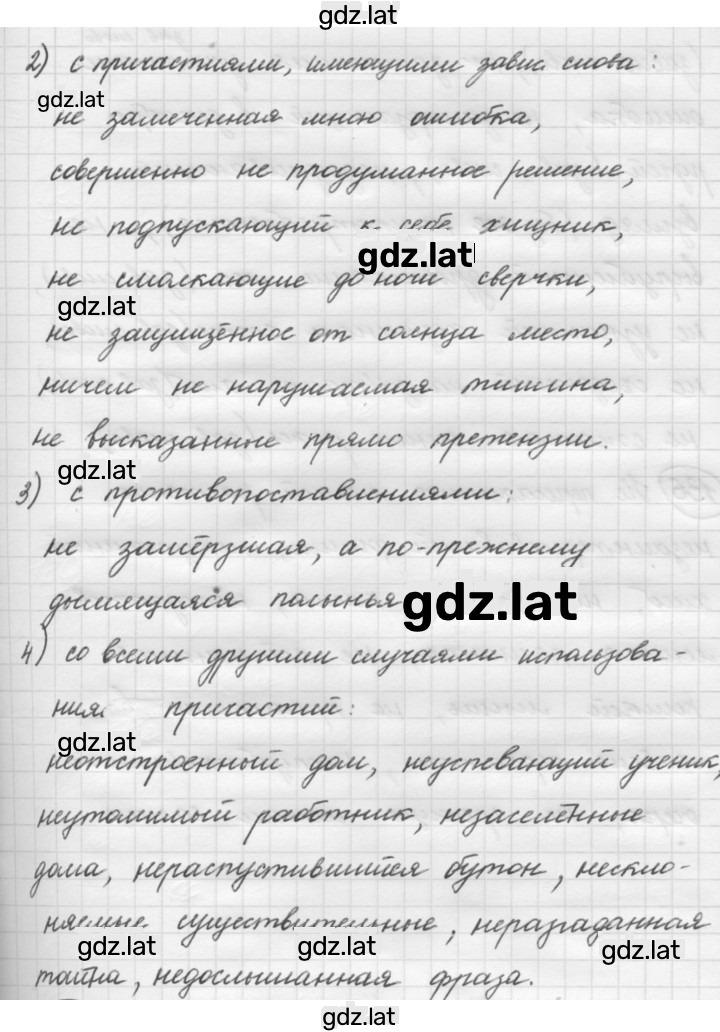 gdz.lat
2) с причастиями, имеющими завис. слова:
gdz.lat
не замеченная мною ошибка,
совершенно не продуманное решение,
не подпускающий к себе хищник,
gdz.lat
не смолкающие до ночи сверчки,
gdz.lat
не защищённое от солнца место,
ничем не нарушаемая тишина,
не высказанные прямо претензии.
gdz.lat
3) с противопоставлениями:
не замёрзшая, а по-прежнему
дымящаяся полынья
gdz.lat
4) со всеми другими случаями использова-
ния причастий:
gdz.lat
неотстроенный дом, неуспевающий ученик,
неутомимый работник, незаселённые
дома, нераспустившийся бутон, нескло-
няемые существительные, неразгаданная
gdz.lat gdz.lat gdz.lat
тайна, недослышанная фраза.
gdz.lat